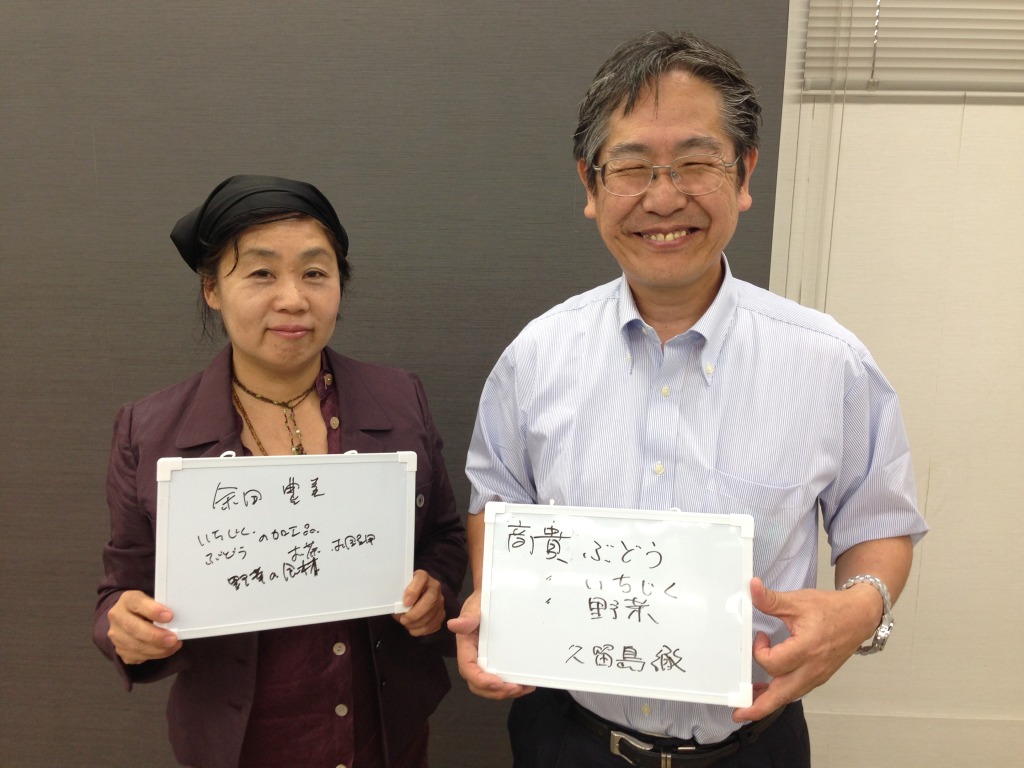 余田 豊美
いちじく の加工品
ぶどう お茶
野菜の
高貴 ぶどう
〃 いちじく
〃 野菜
久留島 徹